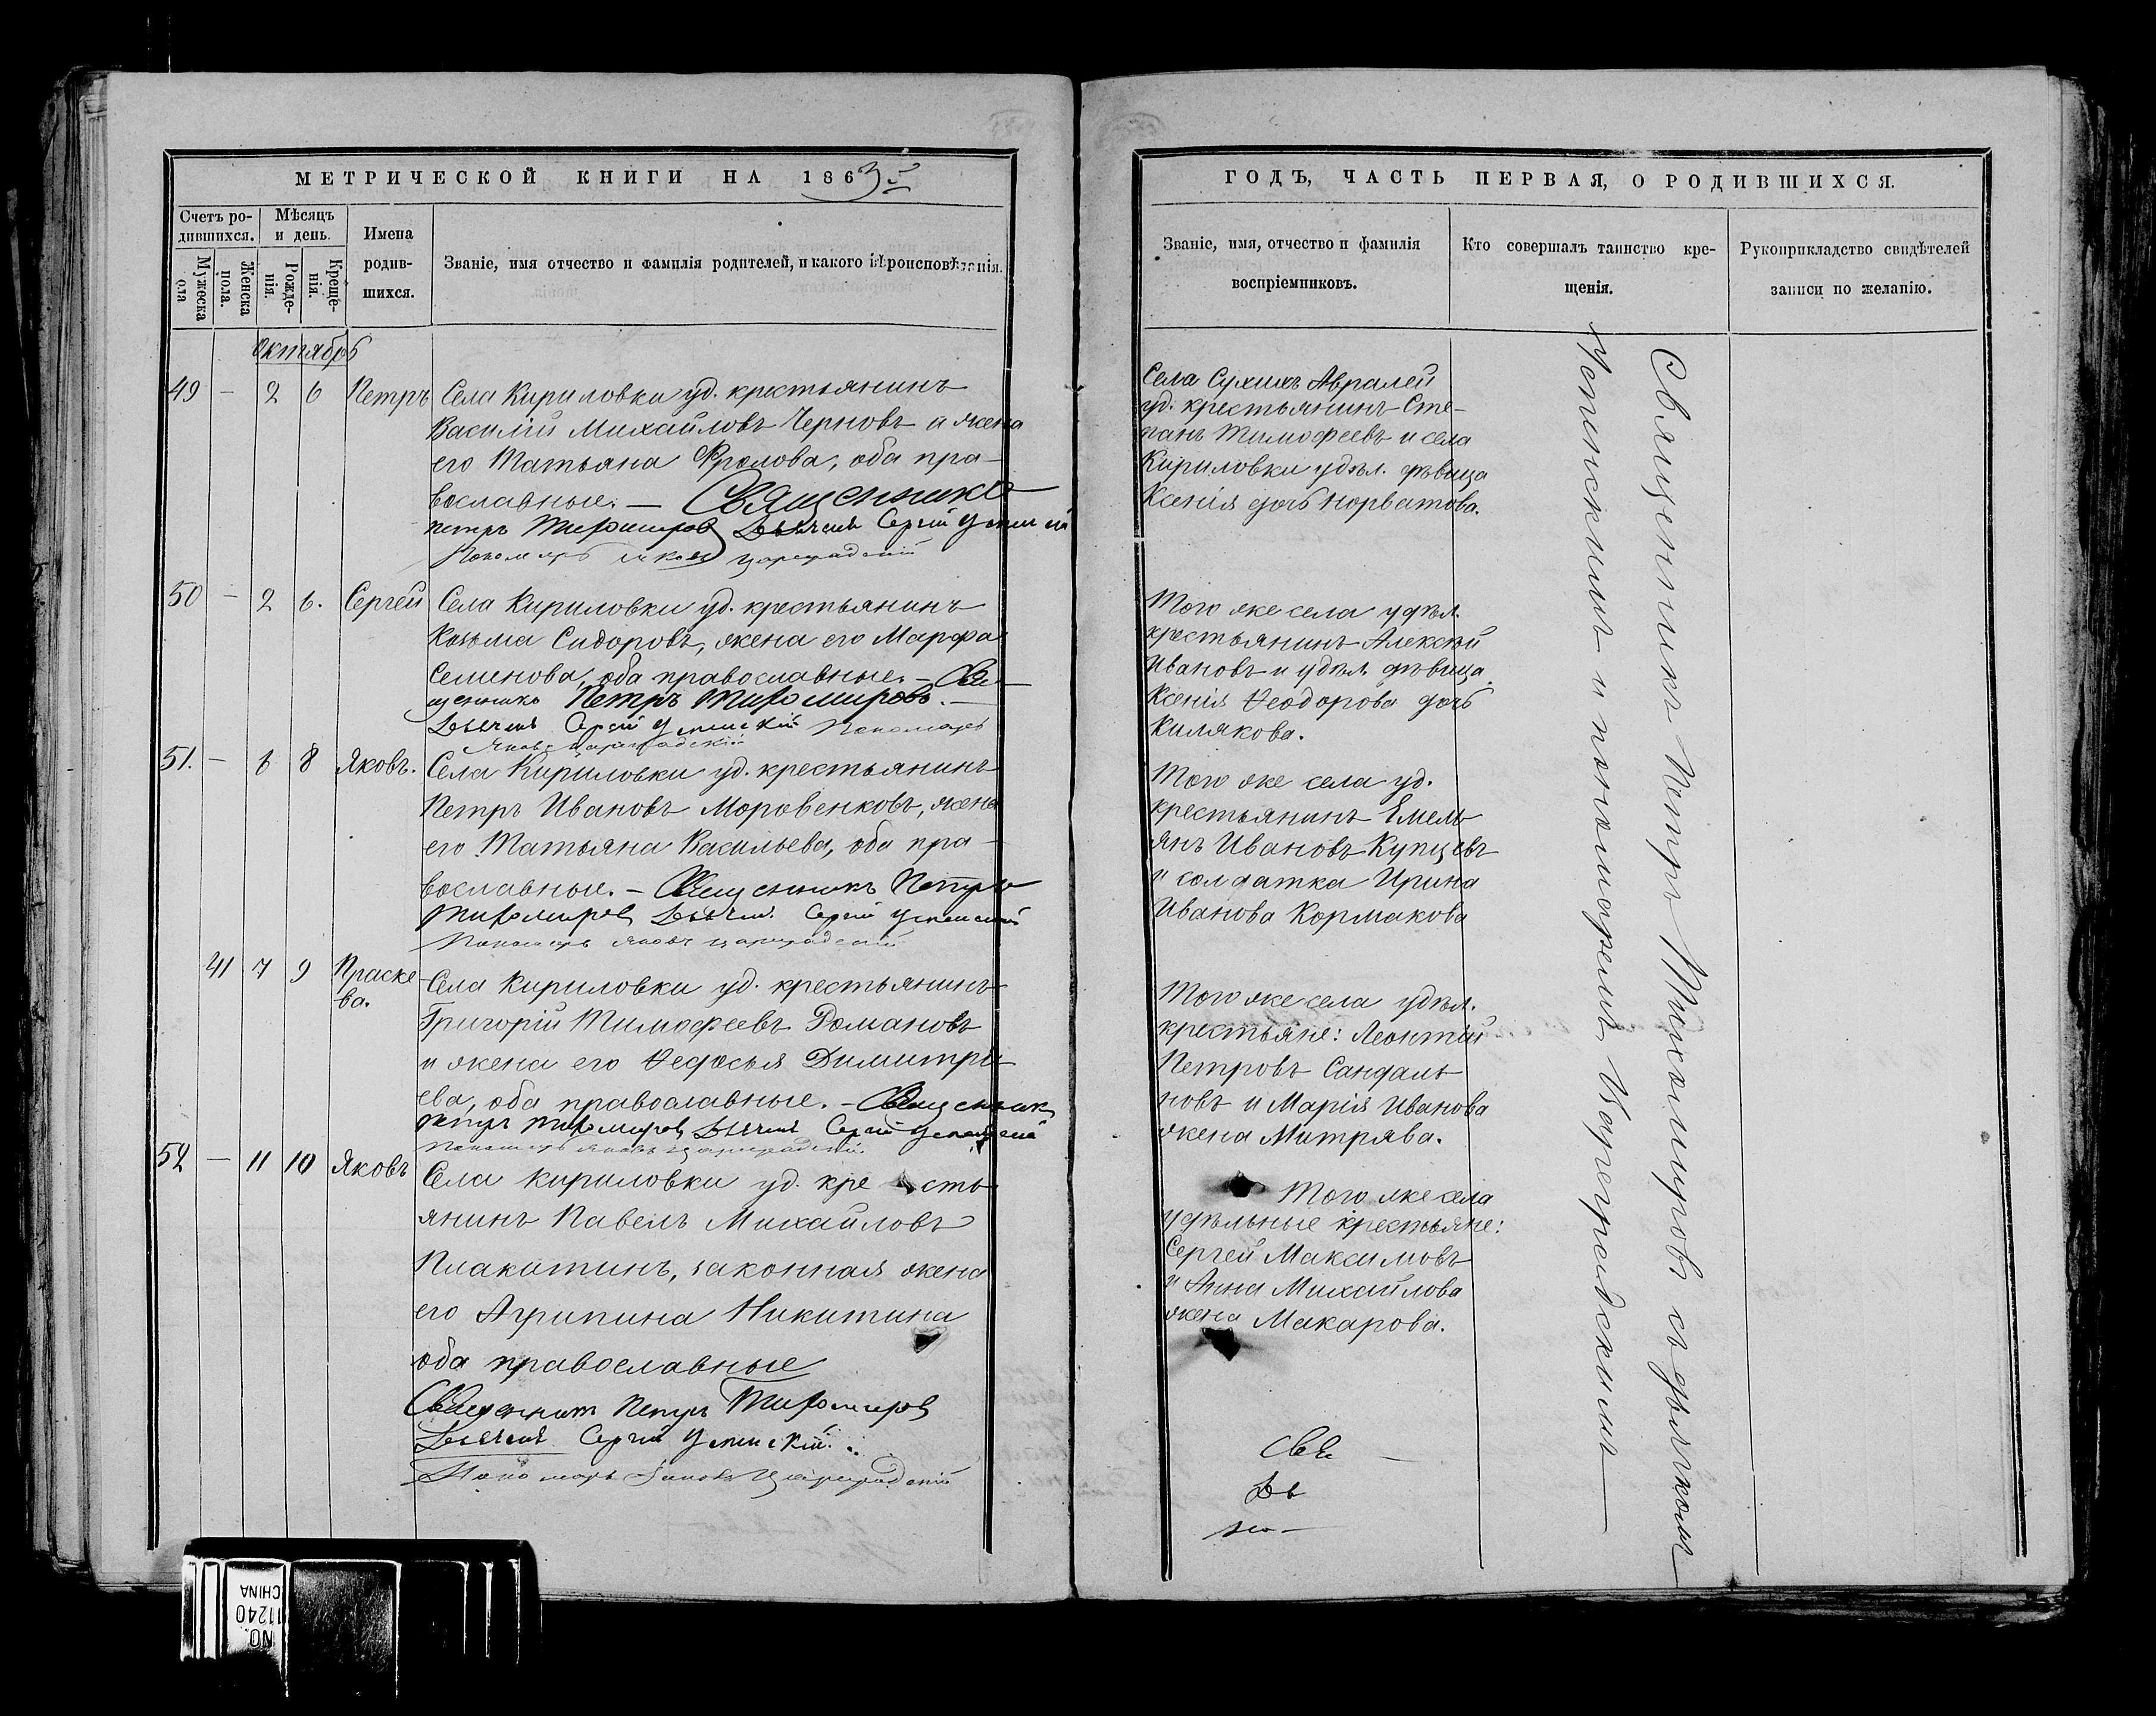 МЕТРИЧЕСКОЙ КНИГИ НА 1863
Счетъ ро-
дившихся.
Мѣсяцъ
и день.
Мужеска
пола
Женска
пола.
Рожде-
нія.
Креще-
нія.
Имена
родив-
шихся.
Званіе, имя отчество и фамилія родителей, и какого вѣроисповѣданія.
Октябрь
49 - 2 6 Петръ Села Кириловки уд. крестьянинъ
Василій Михайловъ Черновъ и жена
его Татьяна Фролова, оба пра-
вославные. — Священникъ
Петръ Тихомировъ Дьячекъ Сергій Успенскій
Пономарь Яковъ Цареградскій
50 - 2 6. Сергей Села Кириловки уд. крестьянинъ
Козьма Сидоровъ, жена его Марфа
Семенова, оба православные. — Свя-
щенникъ Петръ Тихомировъ. —
Дьячекъ Сергій Успенскій Пономарь
Яковъ Цареградскій
51. - 6 8 Яковъ. Села Кириловки уд. крестьянинъ
Петръ Ивановъ Моровенковъ, жена
его Татьяна Васильева, оба пра-
вославные. — Священникъ Петръ
Тихомировъ Дьячекъ Сергій Успенскій
Пономарь Яковъ Цареградскій
41 7 9 Праске-
ва.
Села Кириловки уд. крестьянинъ
Григорій Тимофеевъ Романовъ
и жена его Ѳедосья Димитрі-
ева, оба православные. — Священникъ
Петръ Тихомировъ Дьячекъ Сергій Успенскій
Пономарь Яковъ Цареградскій
52 — 11 10 Яковъ Села Кириловки уд. кре сть-
янинъ Павелъ Михайловъ
Плакитинъ, законная жена
его Агрипина Никитина
оба православные
Священникъ Петръ Тихомировъ
Дьячекъ Сергій Успенскій.
Пономарь Яковъ Цареградскій
ГОДЪ, ЧАСТЬ ПЕРВАЯ, О РОДИВШИХСЯ.
Званіе, имя, отчество и фамилія
воспріемниковъ.
Кто совершалъ таинство кре-
щенія.
Рукоприкладство свидѣтелей
записи по желанію.
Села Сухихъ Авралей
уд. крестьянинъ Сте-
панъ Тимофеевъ и села
Кириловки удѣл. дѣвица
Ксенія дочь Норватова.
Того же села удѣл.
крестьянинъ Алексѣй
Ивановъ и удѣл. дѣвица
Ксенія Ѳеодорова дочь
Килякова.
Того же села уд.
крестьянинъ Емель-
янъ Ивановъ Купцевъ
и солдатка Ирина
Иванова Кормакова
Того же села удѣл.
крестьяне: Леонтій
Петровъ Сандаль-
новъ и Марія Иванова
жена Митрява.
Того же села
удѣльные крестьяне:
Сергей Максимовъ
и Анна Михайлова
жена Макарова.
Свя
Дь
По —
Священникъ Петръ Тихомировъ съ дьячкомъ
Успенскимъ и пономаремъ Цареградскимъ —
NO.
11240
CHINA